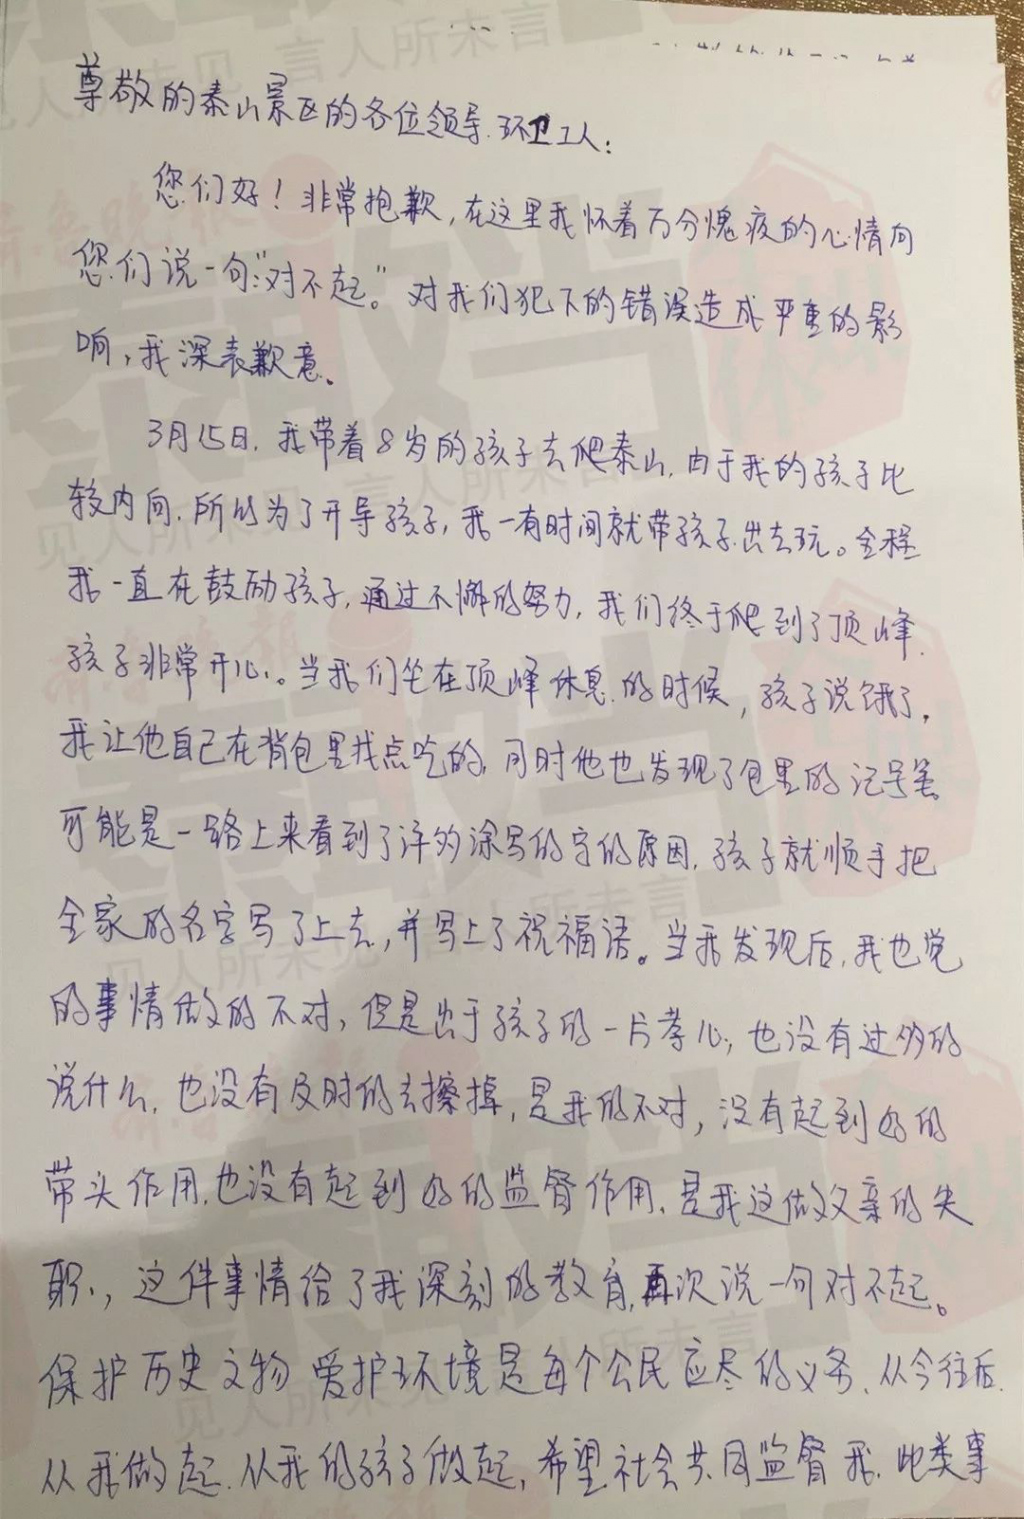 尊敬的泰山景区的各位领导、环卫工人：
您们好！非常抱歉，在这里我怀着万分愧疚的心情向
您们说一句:"对不起。"对我们犯下的错误造成严重的影
响，我深表歉意。
3月15日，我带着8岁的孩子去爬泰山，由于我的孩子比
较内向，所以为了开导孩子，我一有时间就带孩子出去玩。全程
我一直在鼓励孩子，通过不懈的努力，我们终于爬到了顶峰，
孩子非常开心。当我们坐在顶峰休息的时候，孩子说饿了，
我让他自己在背包里找点吃的，同时他也发现了包里的记号笔。
可能是一路上来看到了许多涂写的字的原因，孩子就顺手把
全家的名字写了上去，并写上了祝福语。当我发现后，我也觉
的事情做的不对，但是出于孩子的一片孝心，也没有过多的
说什么，也没有及时的去擦掉，是我的不对，没有起到好的
带头作用，也没有起到好的监督作用，是我这做父亲的失
职，这件事情给了我深刻的教育，再次说一句对不起。
保护历史文物 爱护环境是每个公民应尽的义务、从今往后，
从我做起，从我的孩子做起，希望社会共同监督我，此类事
见人所未见 言人所未言
泰敢当
齐鲁晚报
见人所未见 言人所未言
泰敢当
见人所未见 言人所未言
泰敢当
见人所未见 言人所未言